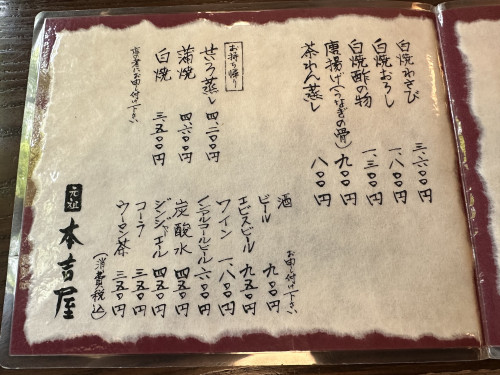 白焼わさび 三、六〇〇円
白焼おろし 一、八〇〇円
白焼酢の物 一、三〇〇円
唐揚げ(うなぎの骨) 九〇〇円
茶わん蒸し 八〇〇円
お持ち帰り
せいろ蒸し 四、二〇〇円
蒲焼 四、六〇〇円
白焼 三、五〇〇円
お申し付け下さい
酒 お申し付け下さい
ビール 九〇〇円
エビスビール 九五〇円
ワイン 一、八〇〇円
ノンアルコールビール 六〇〇円
炭酸水 四五〇円
ジンジャエール 四五〇円
コーラ 三五〇円
ウーロン茶 三五〇円
(消費税込)
元祖 本吉屋